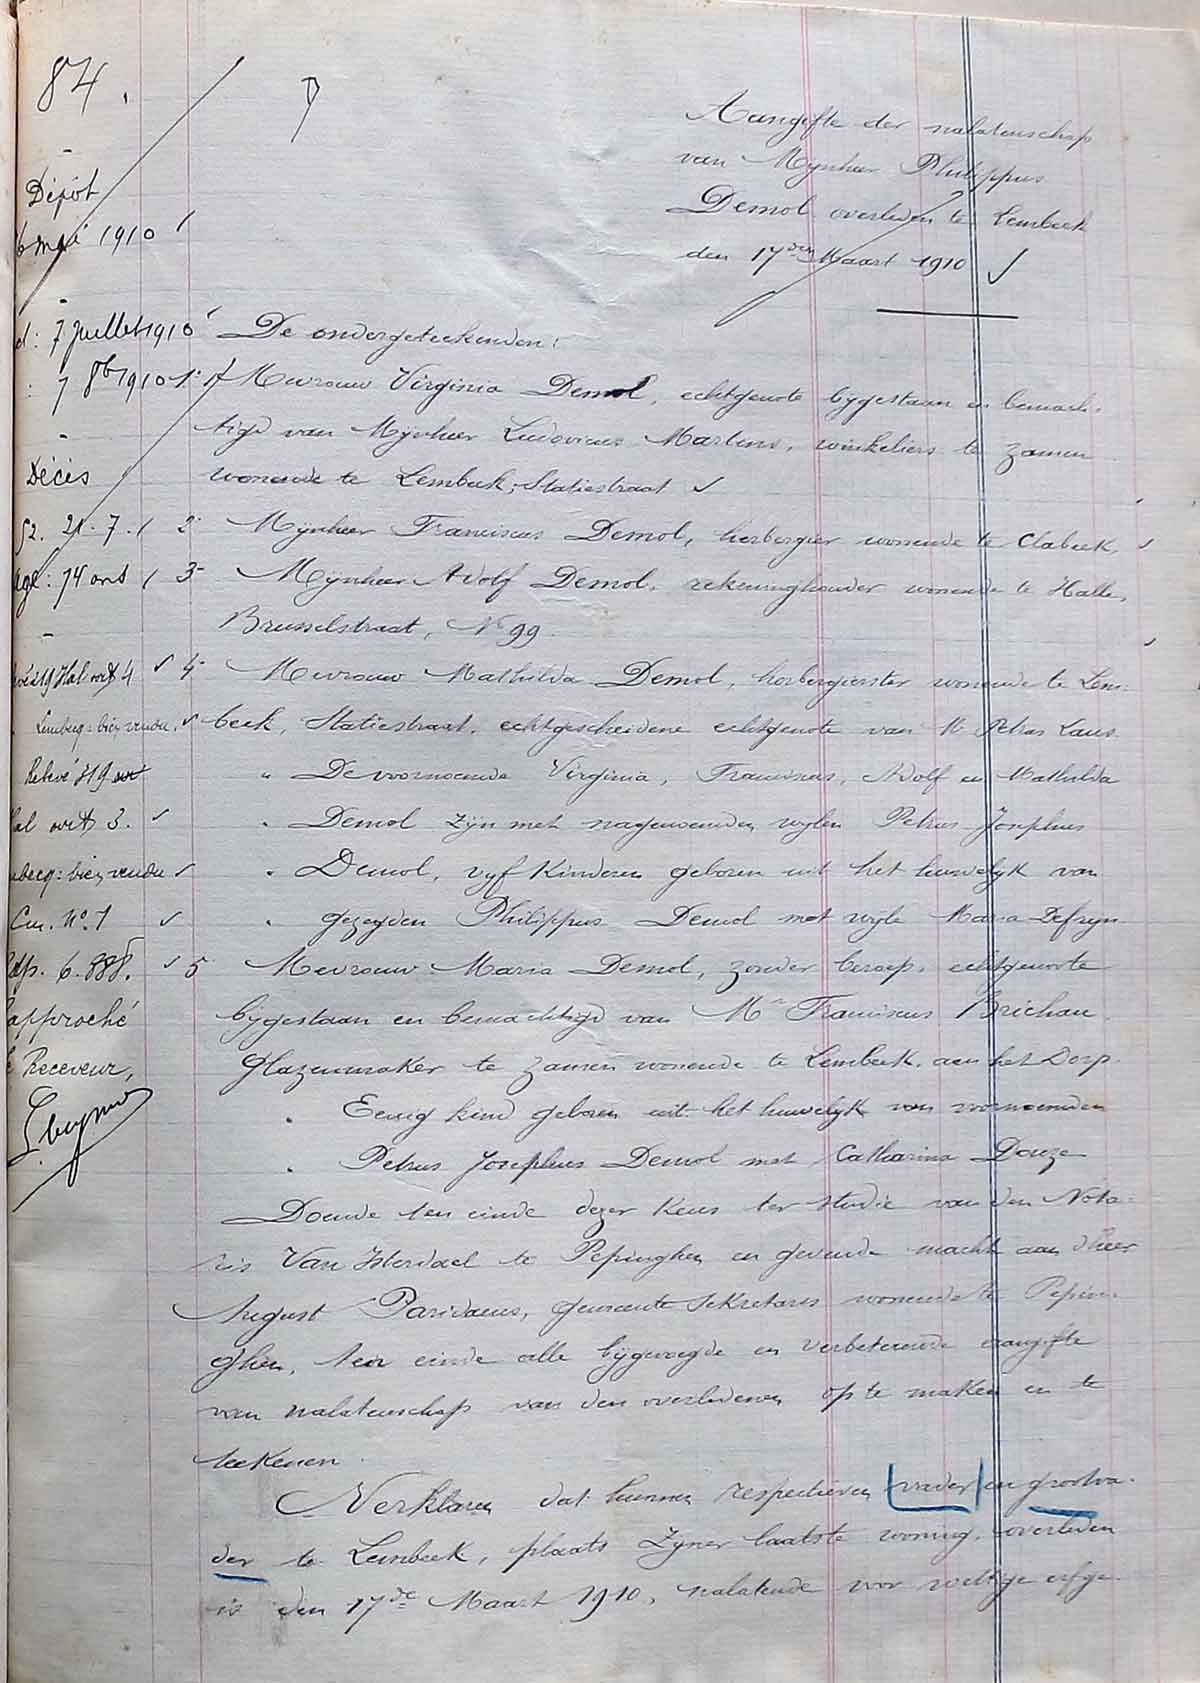 84.
Aangifte der nalatenschap
van Mynheer Philippus
Demol overleden te Lembeek
den 17den Maart 1910
Dépôt
mai 1910
7 Juillet 1910
7 8bre 1910
Décès
52. 21.7.
age: 74 ans
19 Hal vort 4
Lembecq: bien vendu.
Relevé 19
Hal vort 3.
becq: bien vendu
Cm. No. 1
6.888.
approché
Receveur,
De ondergeteekenden:
1° Mevrouw Virginia Demol, echtgenote bygestaan en bemach-
tigd van Mijnheer Ludovicus Martens, winkeliers te zamen
wonende te Lembeek, Statiestraat
2° Mijnheer Franciscus Demol, herbergier wonende te Clabeek,
3° Mijnheer Adolf Demol, rekeninghouder wonende te Halle,
Brusselstraat, No 99.
4° Mevrouw Mathilda Demol, herbergierster wonende te Lem-
beek, Statiestraat, echtgescheidene echtgenote van Mr Petrus Laus
" De voornoemde Virginia, Franciscus, Adolf en Mathilda
" Demol zijn met nagenoemden wylen Petrus Josephus
" Demol, vyf Kinderen geboren uit het huwelyk van
" gezegden Philippus Demol met wyle Maria Defryn
5 Mevrouw Maria Demol, zonder beroep, echtgenote
bijgestaan en bemachtigd van Mr Franciscus Brichau
Glazenmaker te zamen wonende te Lembeek, aan het Dorp.
" Eenig kind geboren uit het huwelyk van voornoemden
" Petrus Josephus Demol met Catharina Douze
Doende ten einde dezer Keus ter studie van den Nota-
ris Van Isterdael te Pepinghen en gevende macht aan d'heer
August Paridaens, gemeente Sekretaris wonende te Pepin-
ghen, ten einde alle bijgevoegde en verbeterende aangifte
van nalatenschap van den overledenen op te maken en te
teekenen.
Verklaren dat hunnen respectieven vader en grootva-
der te Lembeek, plaats zyner laatste woning, overleden
is den 17de Maart 1910, nalatende voor wettige erfge-